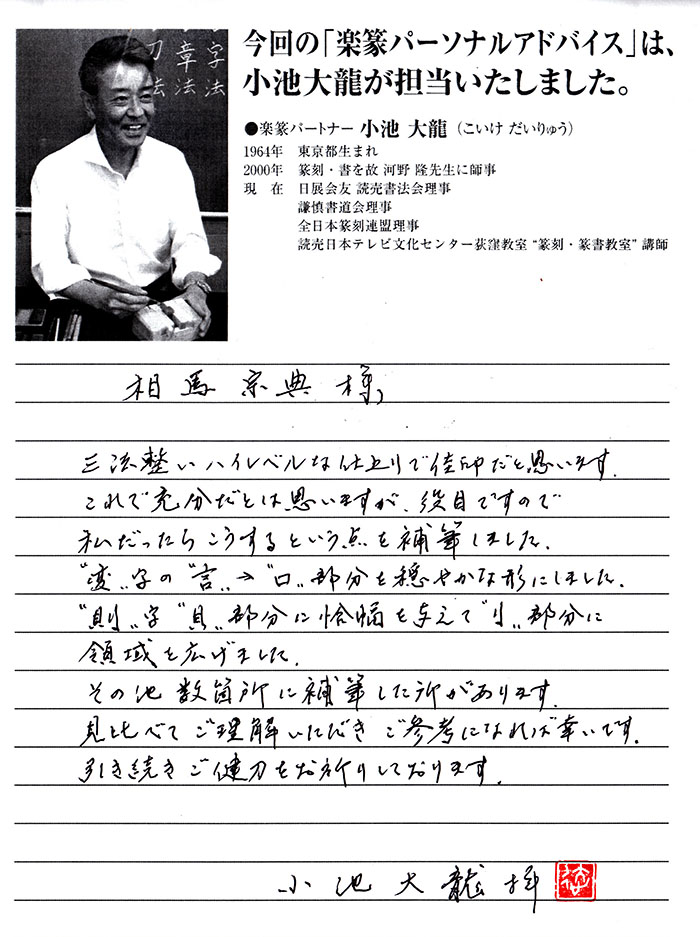 字法
章法
刀法
今回の「楽篆パーソナルアドバイス」は、
小池大龍が担当いたしました。
●楽篆パートナー 小池 大龍（こいけ だいりゅう）
1964年 東京都生まれ
2000年 篆刻・書を故 河野 隆先生に師事
現 在 日展会友 読売書法会理事
謙慎書道会理事
全日本篆刻連盟理事
読売日本テレビ文化センター荻窪教室 “篆刻・篆書教室” 講師
相馬宗典様
三法整いハイレベルな仕上りで佳印だと思います.
これで充分だとは思いますが、役目ですので
私だったらこうするという点を補筆しました.
“変„字の“言„→“口„部分を穏やかな形にしました.
“則„字“貝„部分に恰幅を与えて“刂„部分に
領域を広げました.
その他数箇所に補筆した所があります.
見比べてご理解いただきご参考になれば幸いです.
引き続きご健刀をお祈りしております.
小池大龍拝